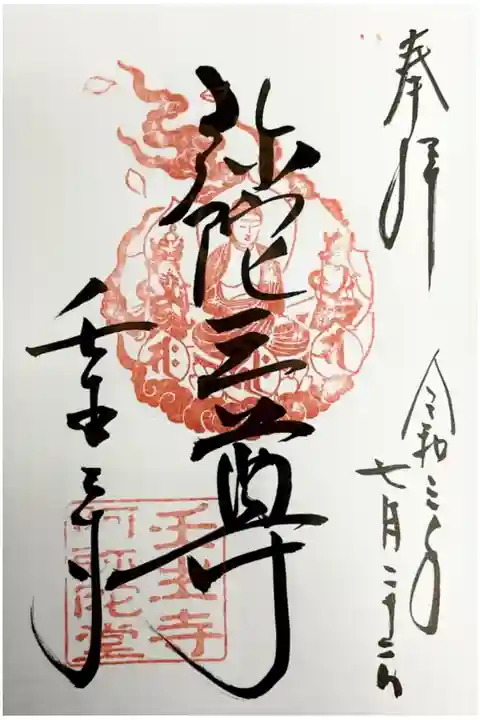 奉拝
令和三年
七月二十二日
弥陀三尊
壬生寺
壬生寺
阿弥陀堂